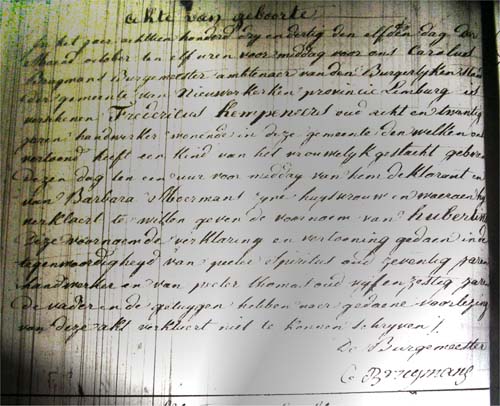 akte van geboorte
In het jaer achtien honderd dry en dertig den elfden dag der
Maend october ten elf uren voor middag voor ons Carolus
Brugmans Burgemeester ambtenaer van den Burgerlyken
der gemeente van Nieuwerkerken provincie Limburg is
verschenen Fredericus Kempeneers oud acht en twintig
jaren handwerker wonende in deze gemeente den welken ons
vertoond heeft een kind van het vrouwelyk geslacht geboren
dezen dag ten een uur voor middag van hem deklarant en
van Barbara Moermans zyne huysvrouw en waeraen hy
verklaert te willen geven de voornaem van huberlina
deze voornoemde verklaring en vertooning gedaen in de
tegenwoordigheyd van peeter Spiritus oud zeventig jaren
handwerker en van peeter thomas oud vyf en zestig jaren
de vader en de getuygen hebben naer gedaene voorlezing
van deze akt verklaert niet te konnen schryven /.
De Burgemeester
C Brugmans